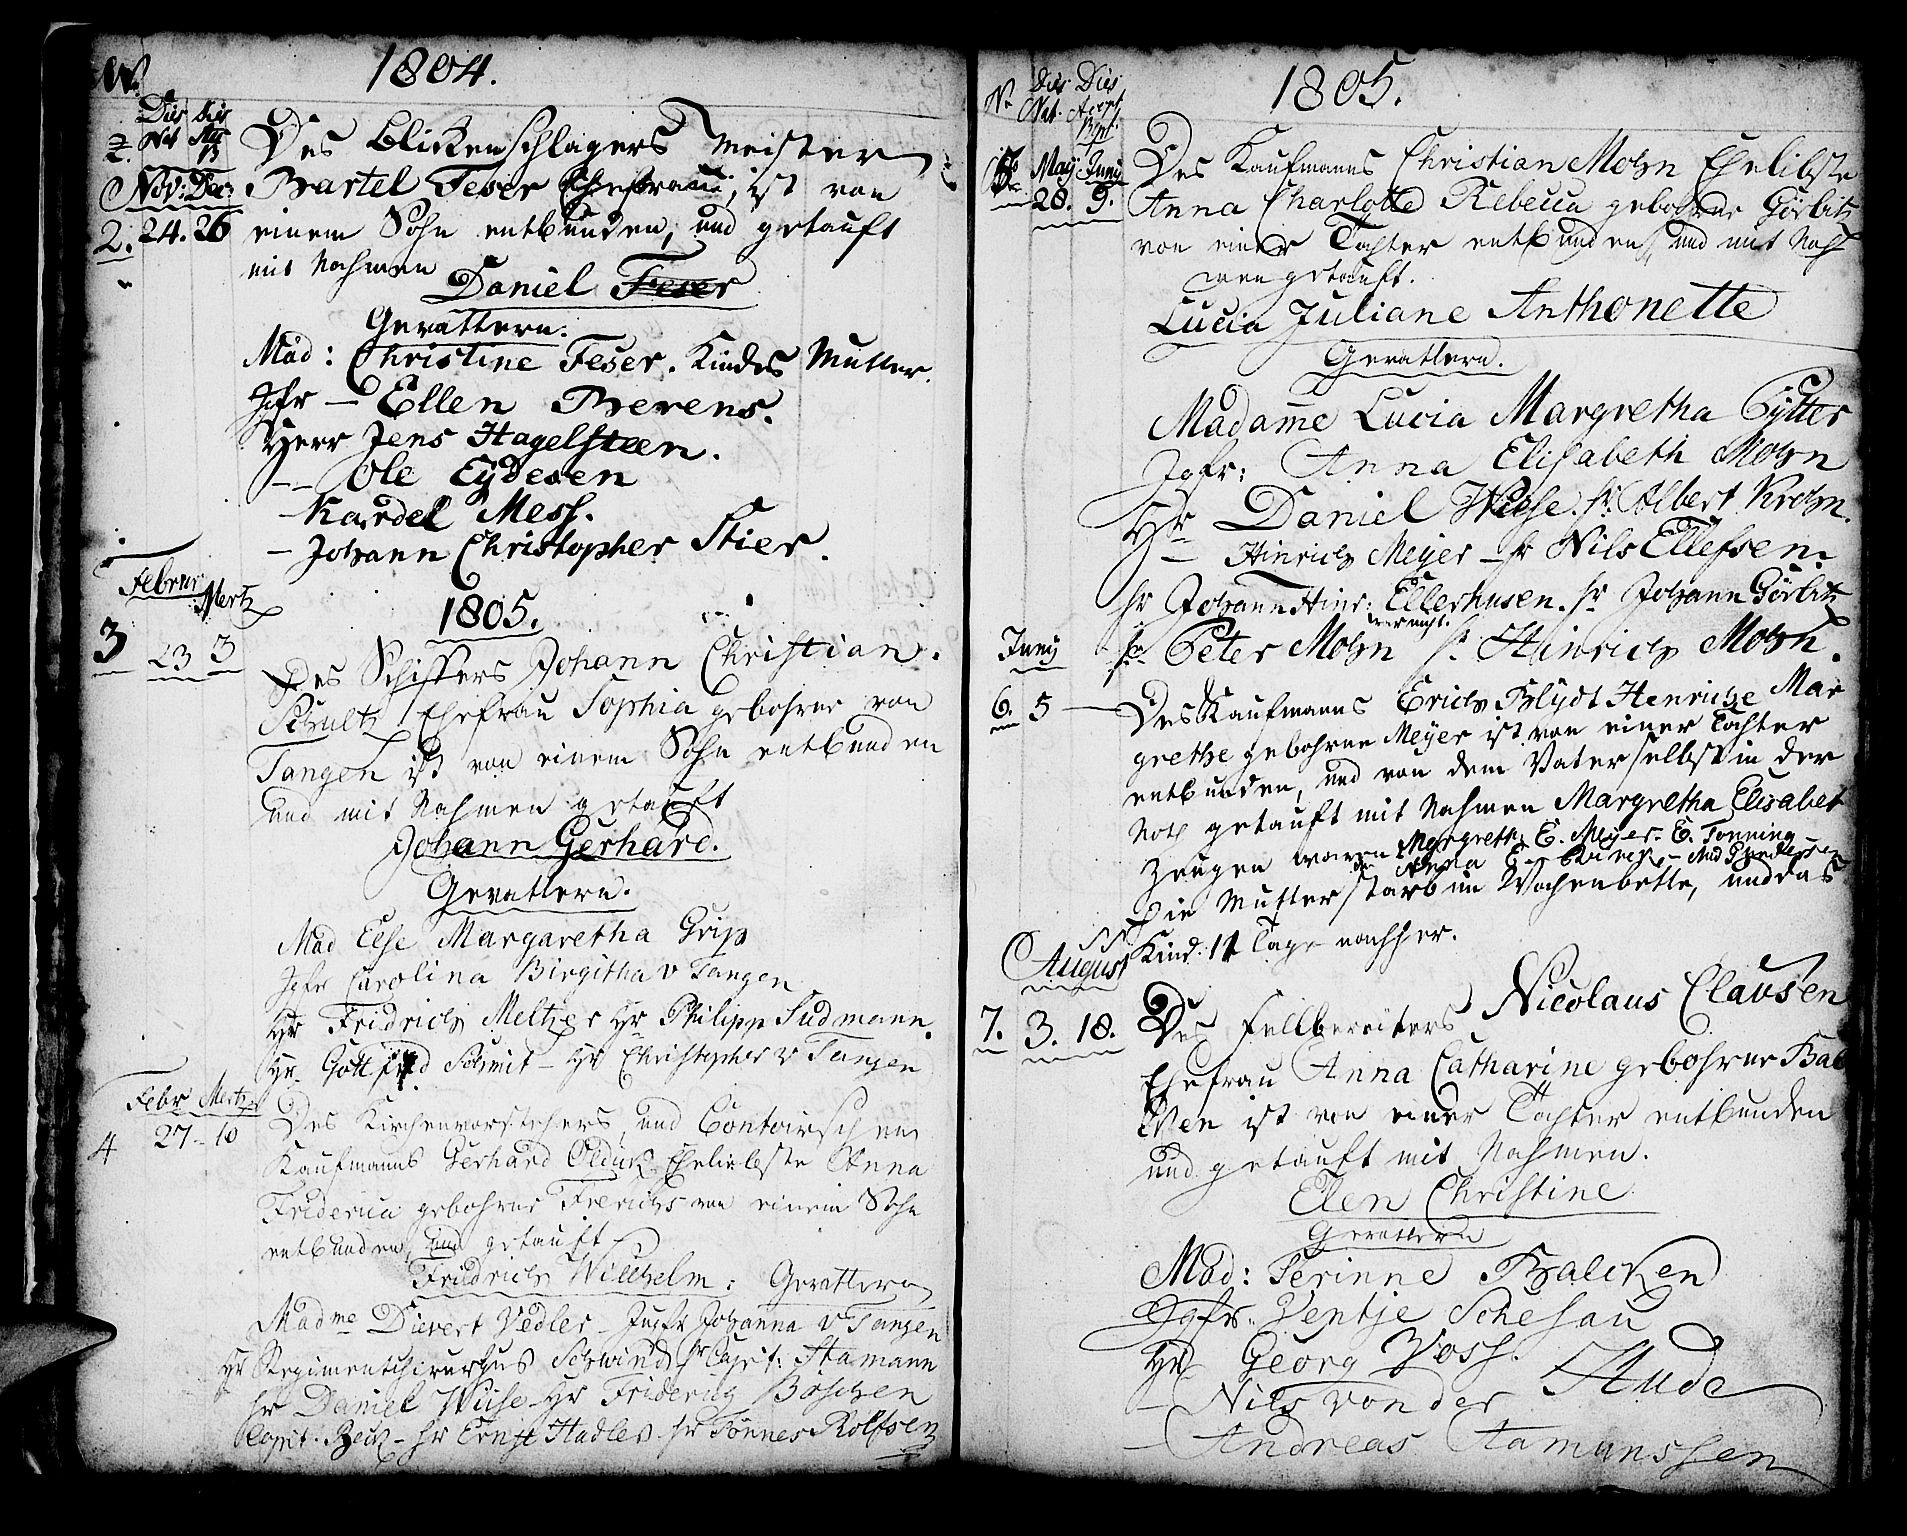 N. 1804.
Dies Dies
Nat
2. Nov: Dec:
2. 24. 26
Des Blickenschlagers Meister
Bartel Feser Ehefrau, ist von
einem Sohn entbunden, und getauft
mit Nahmen
Daniel Feser
Gevattern.
Mad: Christine Feser. Kindes Mutter.
Jgfr — Ellen Berens.
Herr Jens Hagelsteen.
-- Ole Eydesen
- Kardel Mess.
- Johann Christopher Stier.
Februr Mertz
1805.
3 23 3
Des Schiffers Johann Christian
Schultz Ehefrau Sophia gebohrne von
Tangen ist von einem Sohn entbunden
und mit Nahmen getauft
Johann Gerhard.
Gevattern.
Mad Else Margaretha Grip
Jgfr Carolina Birgitha v Tangen
Hr Fridrich Meltzer Hr Philipp Sudmann.
Hr Gottfrid Schmit - Hr Christopher v Tangen
Febr Mertz
4 27 - 10
Des Kirchenvorstehers, und Contoirschen
Kaufmanns Gerhard Ehelielebste Anna
Friderica gebohrne Frerichs von einem Sohn
entbunden, und getauft
Fridrich Wilhelm: Gevattern
Madme Dievert Vedler - Jugfr Johanna v Tangen
Hr Regimentschirurgus Schwindt Hr Capt: Stamann
Hr Daniel Wiese Hr Friderig Böschen
Capit. Beck - Hr Ernst Stadler Hr Tönnes Rolfsen
1805.
N Dies Dies
Nat. Accpt
Bpt.
5. May Juny
28. 9.
Des Kaufmanns Christian Mohn Ehelibste
Anna Charlotte Rebecca gebohrne Görbitz
von einer Tochter entbunden, und mit Nah
men getauft.
Lucia Juliane Anthonette
Gevattern.
Madame Lucia Margretha Pytter
Jgfr: Anna Elisabeth Mohn
Hr Daniel Wiese. Hr Albert Krohn.
Hinrich Meyer - Hr Nils Ellefsen.
Hr Johann Hinr: Ellerhusen. Hr Johann Görbitz
Juny Hr Peter Mohn Hr Hinrich Mohn.
6. 5 — Des Kaufmanns Erich Blydt Henricke Mar
grethe gebohrne Meyer ist von einer Tochter
entbunden, und von dem Vater selbst in der
Noth getauft mit Nahmen Margretha Elisabet
Zeugen waren Margreth E. Meyer. E. Tonning -
Anna
Die Mutter starb im Wochenbette, und das
Kind 11 Tage nachher.
August
7. 3. 18. Des Fellbereiters Nicolaus Clausen
Ehefrau Anna Catharine gebohrne Bal
cken ist von einer Tochter entbunden
und getauft mit Nahmen.
Elen Christine
Gevattern
Mad: Serinne Balcken
Jgfr. Ventje Schesau
Hr Georg Voss.
- Nils von der Hude
- Andreas Aamunssen